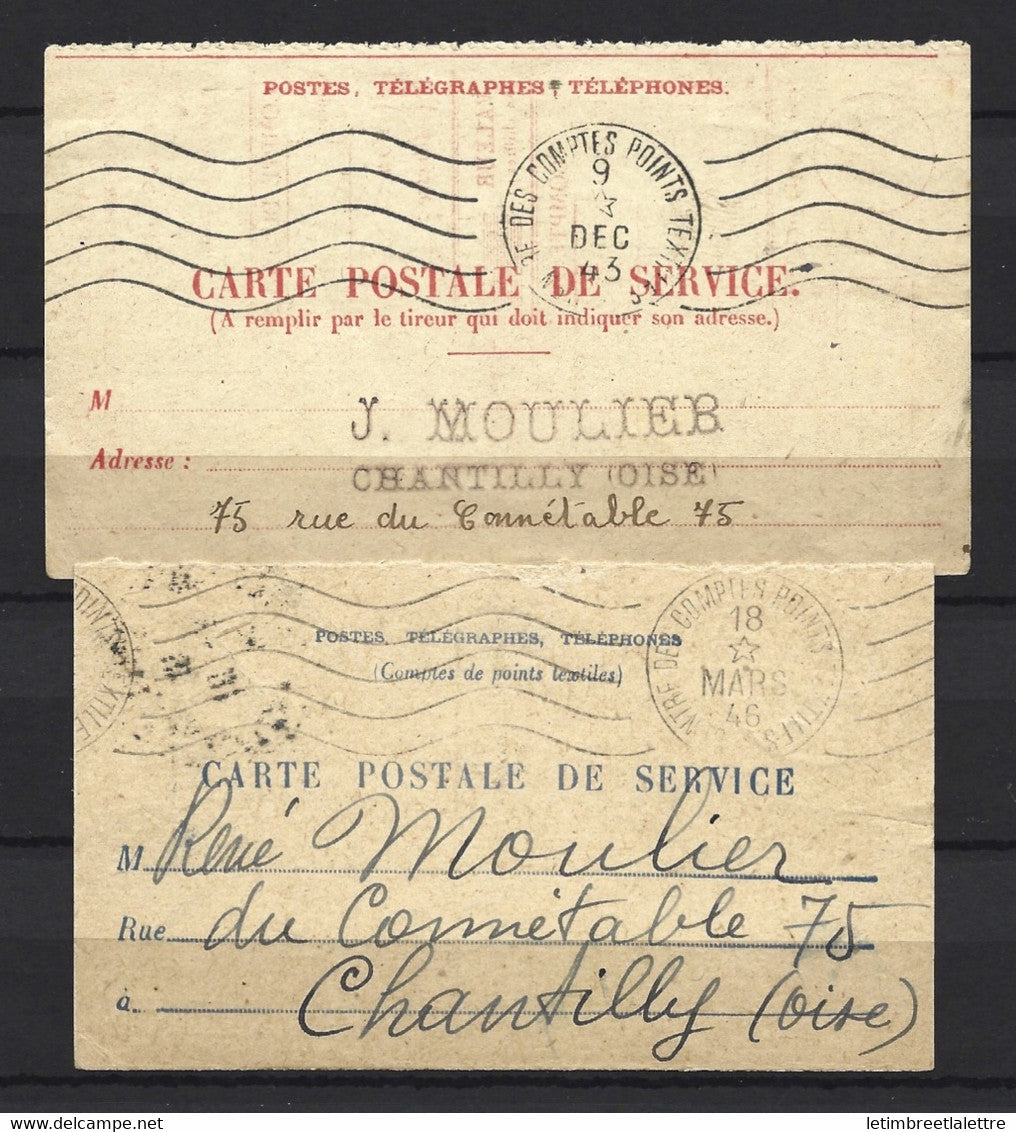 POSTES, TÉLÉGRAPHES, TÉLÉPHONES.
DES COMPTES POINTS TEXTILES
9
DEC
43
CARTE POSTALE DE SERVICE.
(A remplir par le tireur qui doit indiquer son adresse.)
M
J. MOULIER
Adresse :
CHANTILLY (OISE)
75 rue du Connétable 75
NTRE DES COMPTES POINTS TEXTILES
18
MARS
46
POSTES, TÉLÉGRAPHES, TÉLÉPHONES
(Comptes de points textiles)
CARTE POSTALE DE SERVICE
M René Moulier
Rue du Connétable 75
à Chantilly (Oise)
delcampe.net
letimbreetlalettre